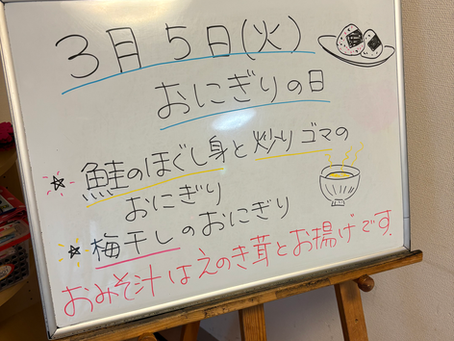 3月5日(火)
おにぎりの日
☆鮭のほぐし身と炒りゴマの
おにぎり
☆梅干しのおにぎり
おみそ汁はえのき茸とお揚げです。